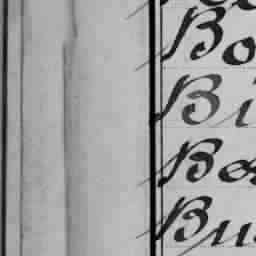 Bo
Bi
Bo
Bu